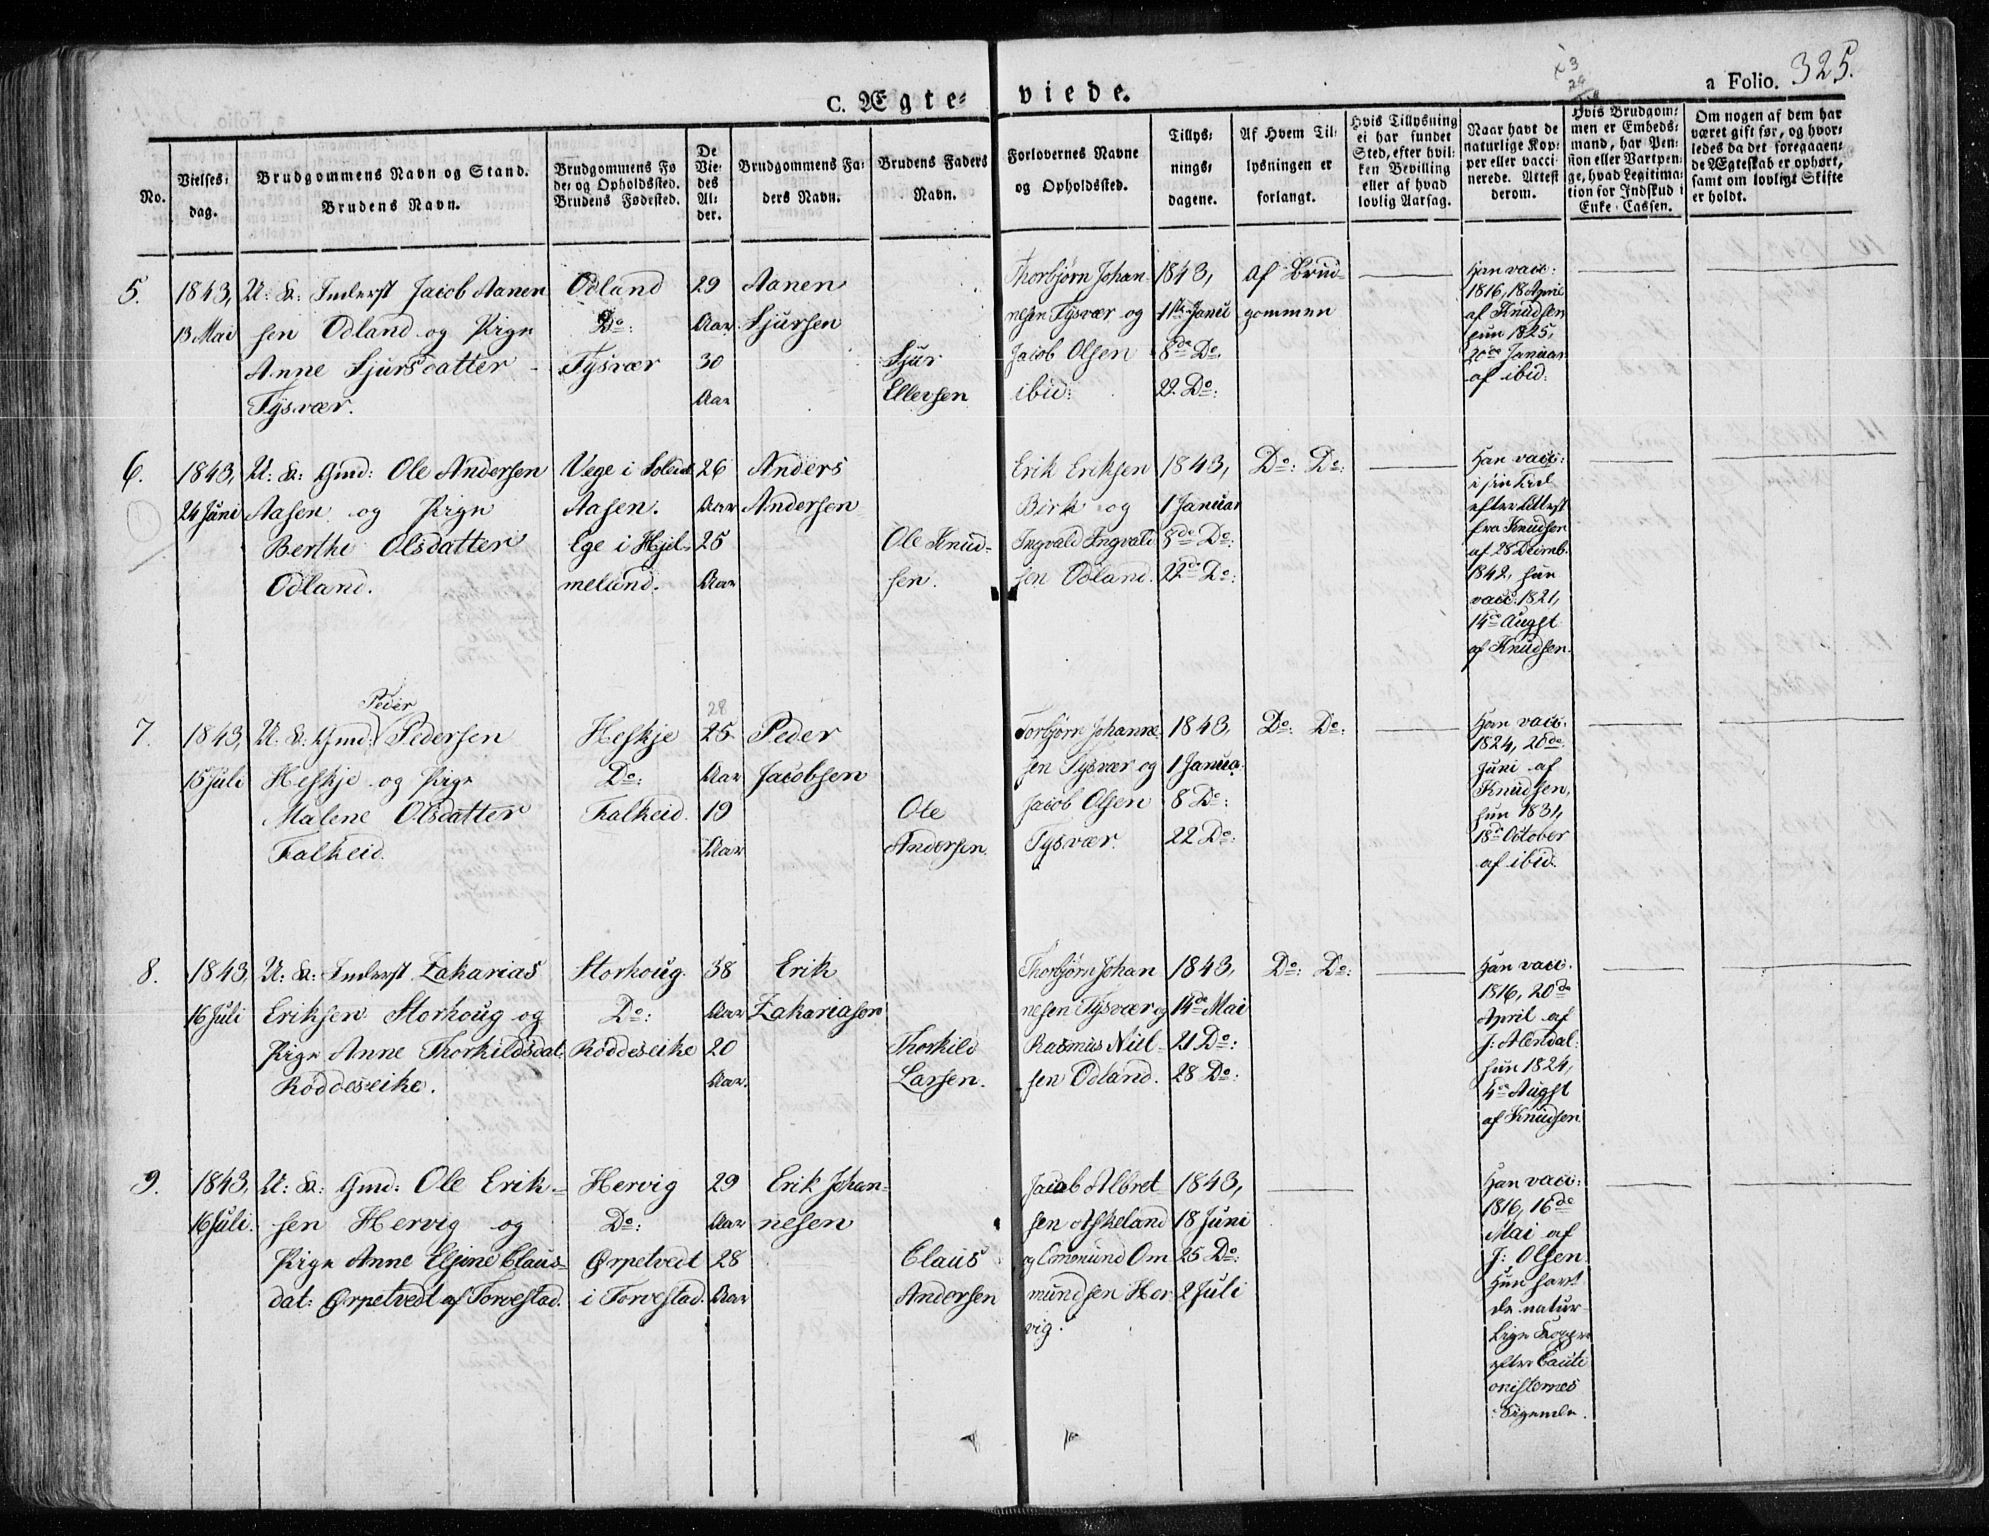 C. Ægte-viede.
a Folio. 325.
No.
Vielses-
dag.
Brudgommens Navn og Stand.
Brudens Navn.
Brudgommens Fø
de- og Opholdssted.
Brudens Fødested.
De
Vie-
des
Al-
der.
Brudgommens Fa-
ders Navn.
Brudens Faders
Navn.
Forlovernes Navne
og Opholdssted.
Tillys-
nings-
dagene.
Af Hvem Til-
lysningen er
forlangt.
Hvis Tillysning
ei har fundet
Sted, efter hvil-
ken Bevilling
eller af hvad
lovlig Aarsag.
Naar havt de
naturlige Kop-
per eller vacci-
nerede. Attest
derom.
Hvis Brudgom-
men er Embeds-
mand, har Pen-
sion eller Vartpen-
ge, hvad Legitima-
tion for Indskud i
Enke-Cassen.
Om nogen af dem har
været gift før, og hvor-
ledes da det foregaaen-
de Ægteskab er ophørt,
samt om lovligt Skifte
er holdt.
5.
1843,
13 Mai
U: K: Inderst Jacob Aanen
sen Odland og Pige
Anne Sjursdatter
Tysvær.
Odland
Do:
Tysvær
29
Aar
30
Aar
Aanen
Sjursen
Sjur
Ellersen
Thorbjørn Johan-
nesen Tysvær og
Jacob Olsen
ibid:
1843,
1ste Janu
8de Do.
22. Do:
af Brud-
gommen
Han vacc:
1816, 18 April
af Knudsen
hun 1825,
20de Januar
af ibid:
6.
1843,
24 Juni
U: K: Gmd: Ole Andersen
Aasen og Pige
Berthe Olsdatter
Odland.
Vege i
Aasen.
Ege i Hjel-
meland.
26
Aar
25
Aar
Anders
Andersen
Ole Knud-
sen.
Erik Eriksen
Birk og
Ingvald Ingvald
sen Odland.
1843,
1 Januar
8de Do:
22de Do:
Do: Do:
Han vacc:
i sin Tid
efter Attest
fra Knudsen
af 28 Decmb.
1842, hun
vacc: 1821,
14de Augst
af Knudsen.
7.
1843,
15 Juli
Peder
U: K: Gmd: Pedersen
Heskje og Pige
Malene Olsdatter
Falkeid.
Heskje
Do:
Falkeid.
28
25
Aar
19
Aar
Peder
Jacobsen
Ole
Andersen.
Torbjørn Johanne
sen Tysvær og
Jacob Olsen
Tysvær.
1843,
1 Janua.
8 Do:
22 Do:
Do: Do:
Han vacc.
1824, 20de
Juni af
Knudsen,
hun 1831,
18de October
af ibid.
8.
1843,
16 Juli
U: K: Inderst Zakarias
Eriksen Storhoug og
Pige Anne Thorkildsdat:
Røddeseike.
Storhoug.
Do:
Røddeseike
38
Aar
20
Aar.
Erik
Zakariasen
Thorkild
Larsen.
Thorbjørn Johan
nesen Tysvær og
Rasmus Niel-
sen Odland.
1843,
14de Mai
21 Do:
28 Do:
Do: Do:
Han vacc.
1816, 20de
April af
J: Alendal.
hun 1824,
4de Augst
af Knudsen
9.
1843,
16 Juli.
U: K: Gmd: Ole Erik-
sen Hervig og
Pige Anne Elsine Claus-
dat: Ørpetvedt af Torvestad.
Hervig
Do:
Ørpetvedt
i Torvestad.
29
Aar
28
Aar
Erik Johan-
nesen
Claus
Andersen
Jacob Albret
sen Askeland
og Omsmund Om
mundsen Her
vig.
1843,
18 Juni
25 Do:
2 Juli
Han vacc:
1816, 16de
Mai af
J: Olsen.
Hun hav
de natur-
lige Kopper
efter Cauti
onisternes
Sigende.